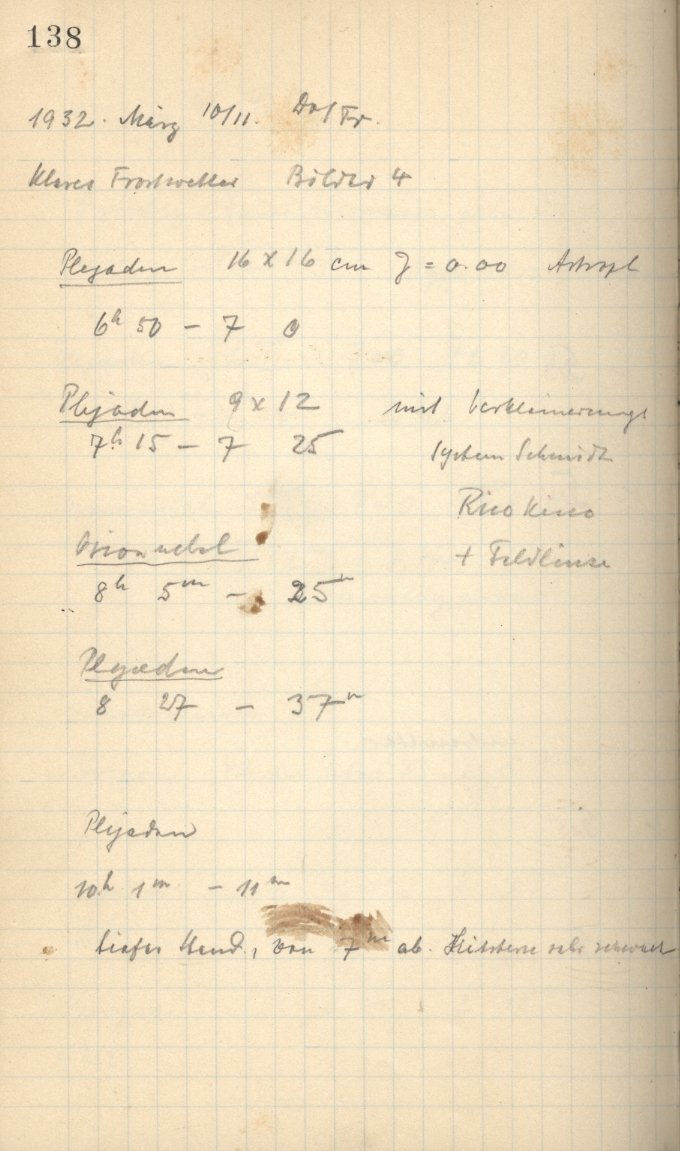 138
1932. März 10/11. Do/Fr.
Klares Frostwetter Bilder 4
Plejaden 16 x 16 cm J = 0.00 Astropl
6h 50 – 7 0
Plejaden 9 x 12 mit Verkleinerungs
7h 15 – 7 25 system Schmidt
Rico Kino
Orionnebel + Feldlinse
8h 5m – 25m
Plejaden
8 27 – 37m
Plejaden
10h 1m – 11m
tiefer Stand, von 7m ab. sehr schwach